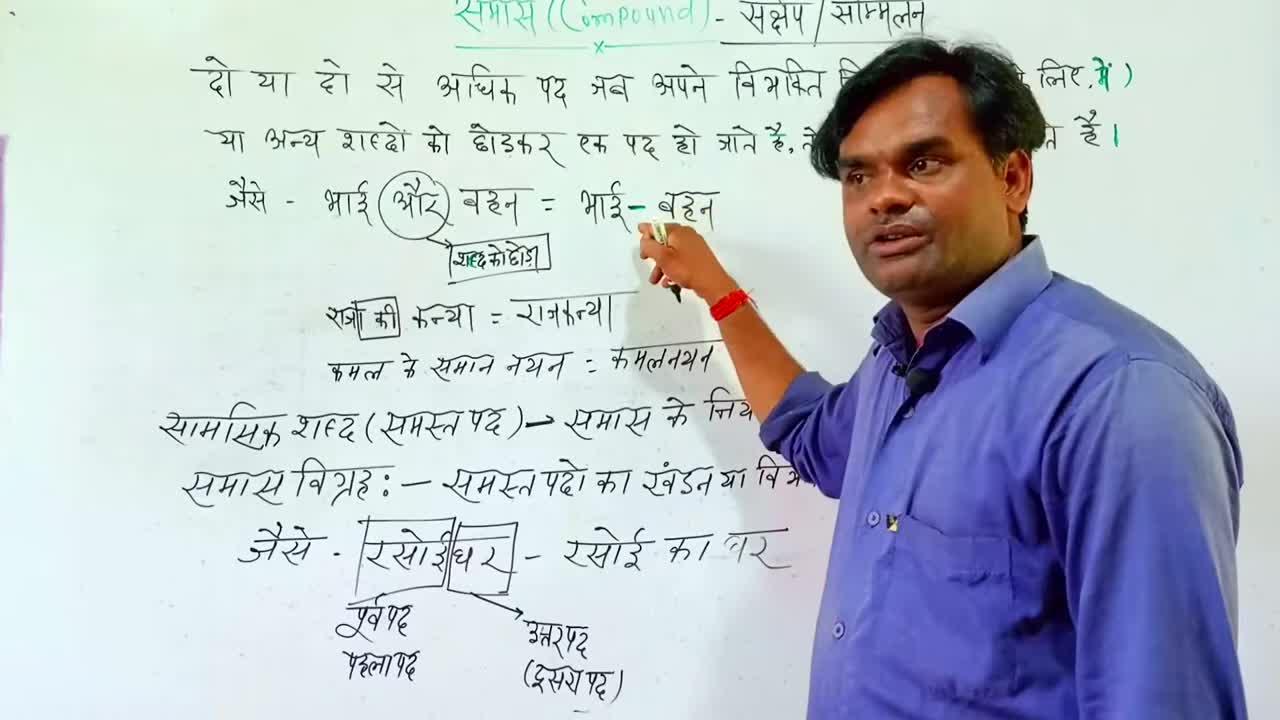 समास (Compound) - संक्षेप / सम्मिलन
दो या दो से अधिक पद जब अपने विभक्ति लिए, में )
या अन्य शब्दों को छोड़कर एक पद हो जाते है, है।
जैसे - भाई और बहन = भाई - बहन
शब्द को छोड़ा
राजा की कन्या = राजकन्या
कमल के समान नयन = कमलनयन
सामसिक शब्द (समस्त पद) → समास के
समास विग्रह : - समस्त पदो का खंडन या
जैसे - रसोई घर - रसोई का घर
पूर्व पद उत्तर पद
पहला पद (दूसरा पद)